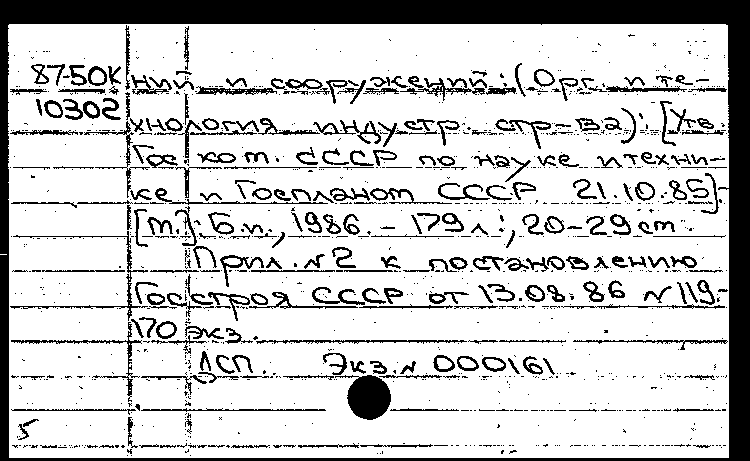 87-50К ний и сооружений: (Орг. и те-
10302 хнология индустр. стр-ва): [Утв.
Гос. ком. СССР по науке и техни-
ке и Госпланом СССР 21.10.85].-
[М.]: Б.и., 1986. - 179 л.; 20-29 см.
Прил. N2 к постановлению
Госстроя СССР от 13.08.86 N119.-
170 экз.
ДСП. Экз. N 000161
5